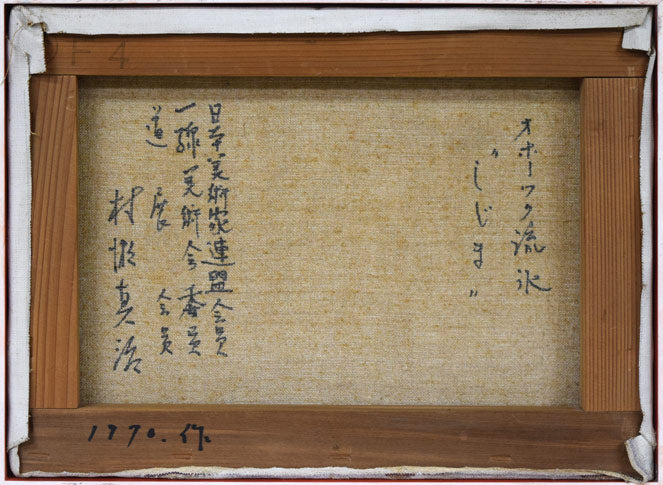 F4
オホーツク流氷
〝しじま〟
日本美術家連盟会員
一線美術会委員
道展会員
村瀬真治
1970.作